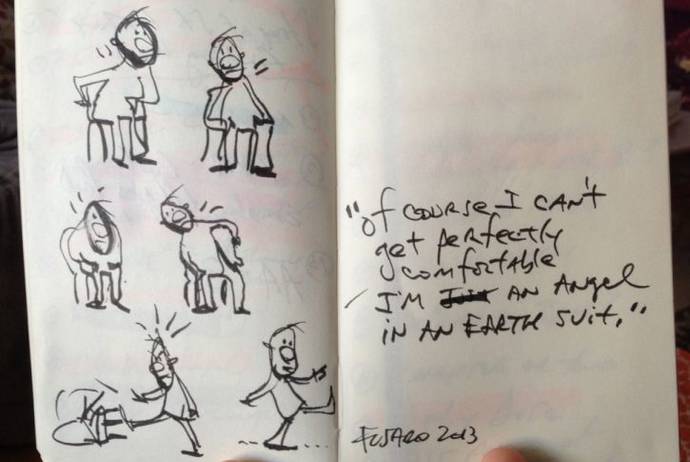 "Of course I can't
get perfectly
comfortable
I'm an angel
in an earth suit."
Fusaro 2013